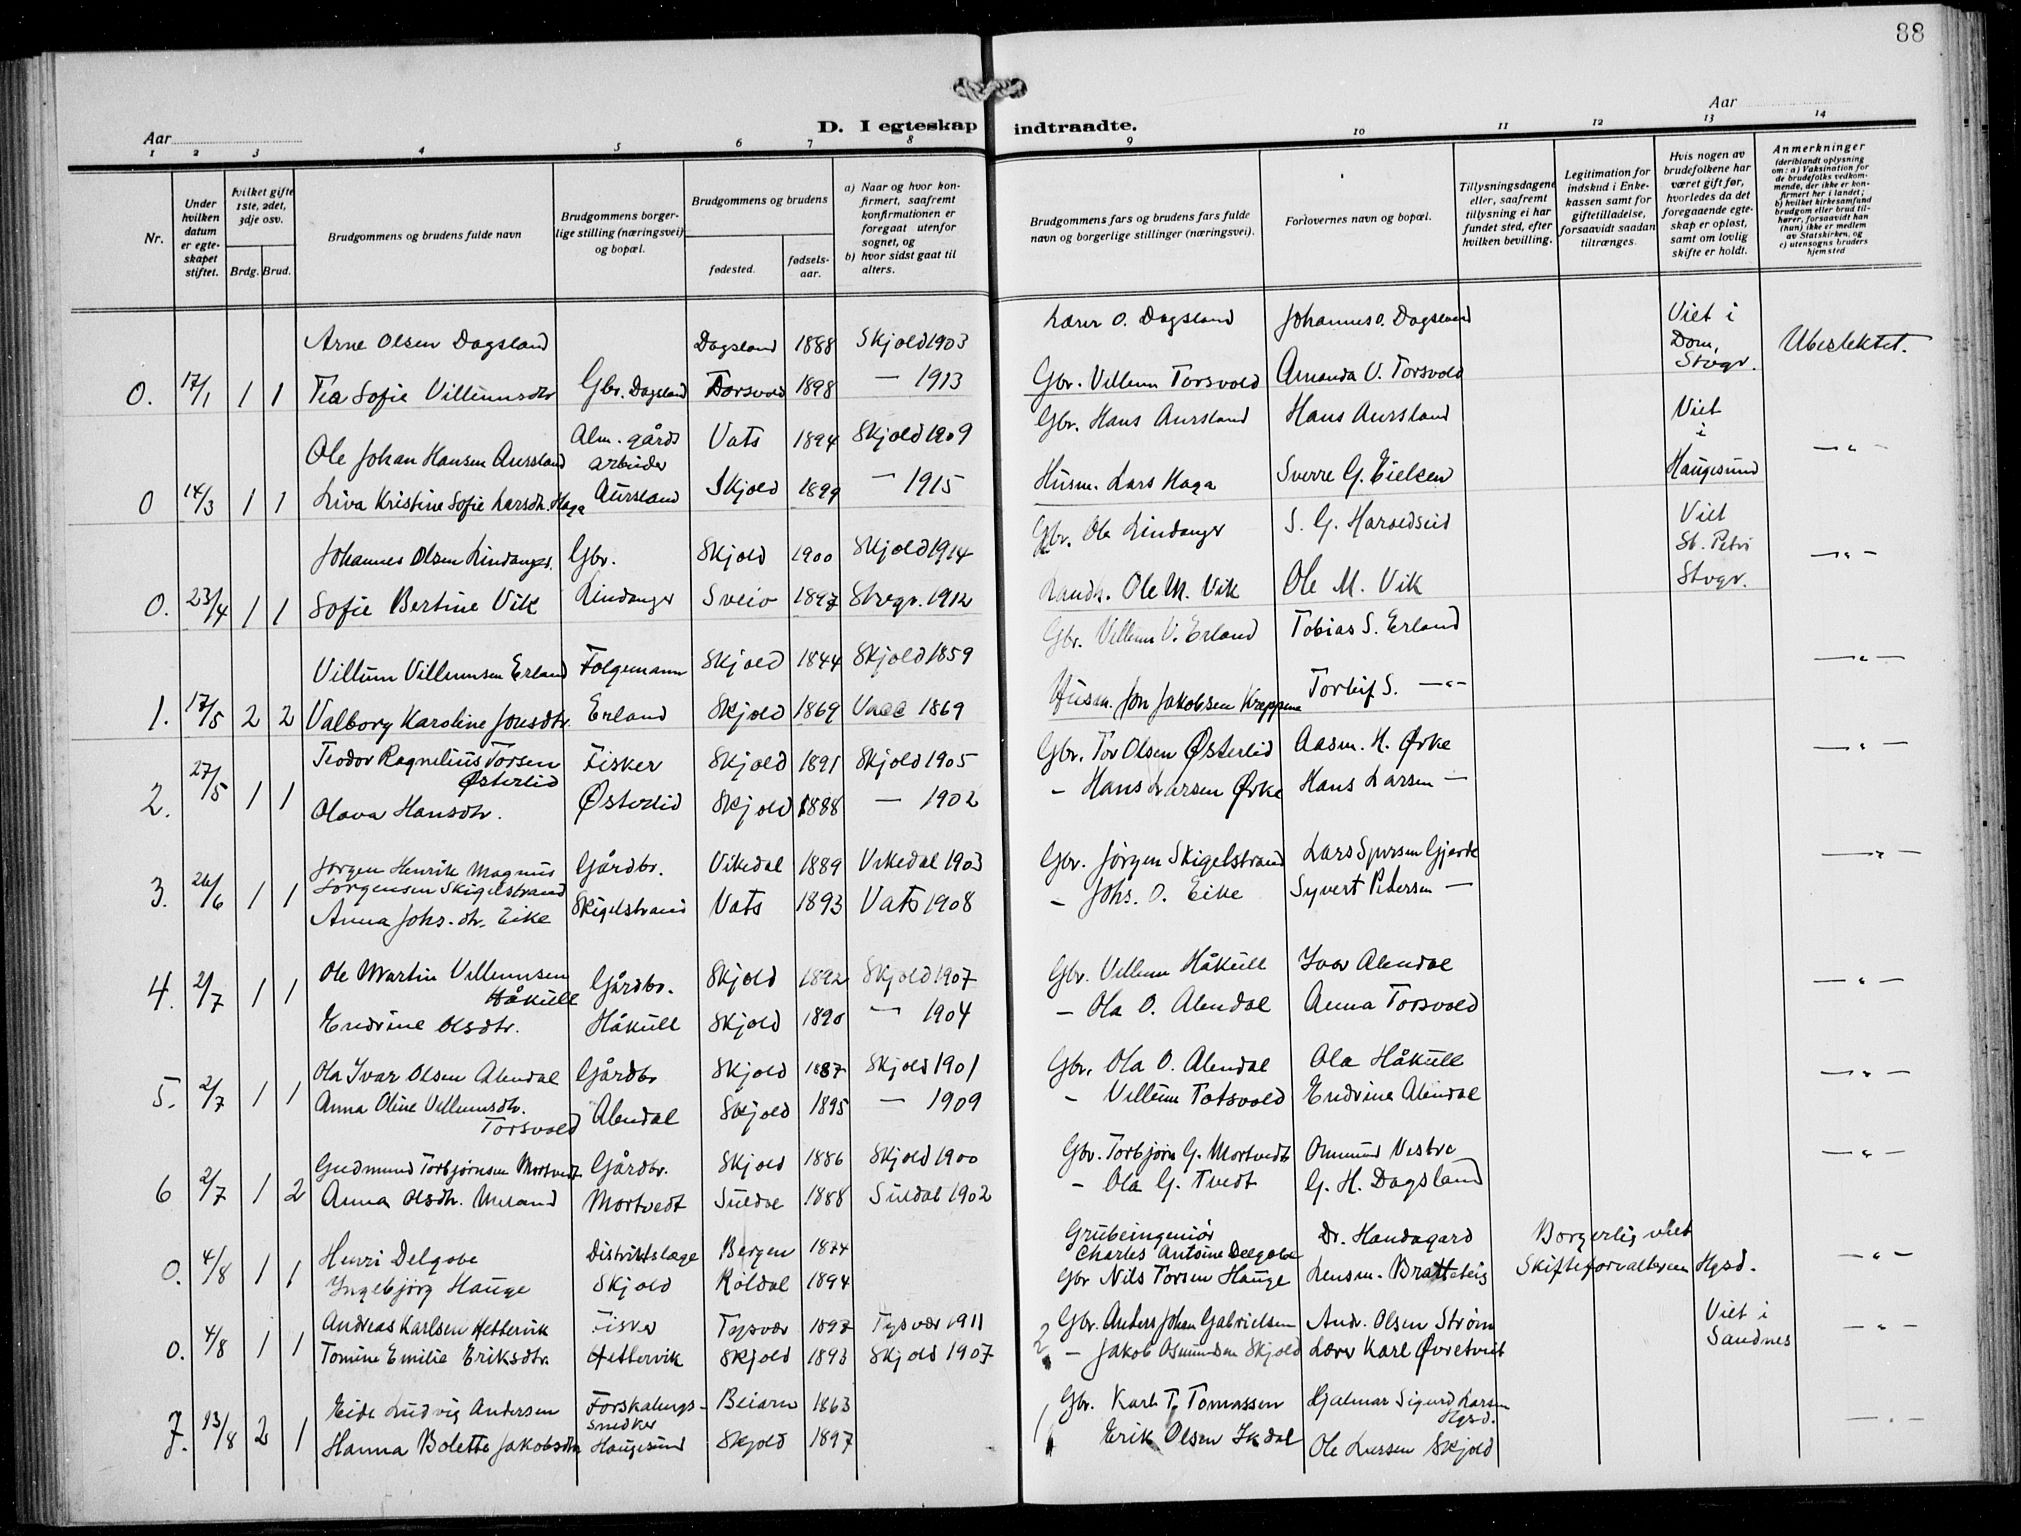 88
Aar
Aar
D. I egteskap indtraadte.
1 2 3 4 5 6 7 8 9 10 11 12 13 14
Nr.
Under hvilken datum er egteskapet stiftet.
hvilket gifte 1ste, 2det, 3dje osv.
Brdg. Brud.
Brudgommens og brudens fulde navn
Brudgommens borgerlige stilling (næringsvei) og bopæl.
Brudgommens og brudens
fødested. fødselsaar.
a) Naar og hvor konfirmert, saafremt konfirmationen er foregaat utenfor sognet, og
b) hvor sidst gaat til alters.
Brudgommens fars og brudens fars fulde navn og borgerlige stillinger (næringsvei).
Forlovernes navn og bopæl.
Tillysningsdagene eller, saafremt tillysning ei har fundet sted, efter hvilken bevilling.
Legitimation for indskud i Enkekassen samt for giftetilladelse, forsaavidt saadan tiltrænges.
Hvis nogen av brudefolkene har været gift før, hvorledes da det foregaaende egteskap er opløst, samt om lovlig skifte er holdt.
Anmerkninger (deriblandt oplysning om: a) Vaksination for de brudefolks vedkommende, der ikke er konfirmert her i landet; b) hvilket kirkesamfund brudgom eller brud tilhører, forsaavidt han (hun) ikke er medlem av Statskirken, og c) utensogns bruders hjemsted
Arne Olsen Dagsland Dagsland 1888 Skjold 1903 Lærer O. Dagsland Johannes O. Dagsland Viet i Dom, Stvgr. Ubeslektet.
0. 17/1 1 1 Tea Sofie Villumsdtr Gbr. Dagsland Torsvold 1898 — 1913 Gbr. Villum Torsvold Amanda V. Torsvold
Ole Johan Hansen Aursland Alm. gårdsarbeider Vats 1894 Skjold 1909 Gbr. Hans Aursland Hans Aursland Viet i Haugesund —"—
0 14/3 1 1 Liva Kristine Sofie Larsdtr. Haga Aursland Skjold 1899 — 1915 Husm. Lars Haga Sverre G. Eielsen
Johannes Olsen Lindanger. Gbr. Skjold 1900 Skjold 1914 Gbr. Ole Lindanger S. G. Haraldseid Viet St. Petri Stvgr. —"—
0. 23/4 1 1 Sofie Bertine Vik Lindanger Sveio 1897 Stvgr. 1912 Landh. Ole M. Vik Ole M. Vik
Villum Villumsen Erland Folgemann Skjold 1844 Skjold 1859 Gbr. Villum V. Erland Tobias S. Erland —"—
1. 17/5 2 2 Valborg Karoline Jonsdtr. Erland Skjold 1869 1869 Husm. Jon Jakobsen Torleif S. —"—
Teodor Ragnelius Torsen Østerlid Fisker Skjold 1891 Skjold 1905 Gbr. Tor Olsen Østerlid Aasm. H. Ørke —"—
2. 27/5 1 1 Olava Hansdtr. Østerlid Skjold 1888 — 1902 — Hans Larsen Ørke Hans Larsen —
Jørgen Henrik Magnus Jørgensen Skigelstrand Gårdbr. Vikedal 1889 Vikedal 1903 Gbr. Jørgen Skigelstrand Lars Gjerde —"—
3. 26/6 1 1 Anna Johs. dtr. Eike Skigelstrand Vats 1893 Vats 1908 — Johs. O. Eike Syvert Petersen —
Ole Martin Villumsen Håkull Gårdbr. Skjold 1892 Skjold 1907 Gbr. Villum Håkull Ivar Alendal —"—
4. 2/7 1 1 Endrine Olsdtr. Håkull Skjold 1890 — 1904 — Ola O. Alendal Anna Torsvold
Ola Ivar Olsen Alendal Gårdbr Skjold 1887 Skjold 1901 Gbr. Ola O. Alendal Ola Håkull —"—
5. 2/7 1 1 Anna Oline Villumsdtr. Torsvold Alendal Skjold 1895 — 1909 — Villum Totsvold Endrine Alendal
Gudmund Torbjørnsen Mortvedt Gårdbr. Skjold 1886 Skjold 1900 Gbr. Torbjørn G. Mortvedt Omund Vestre —"—
6 2/7 1 2 Anna Olsdtr. Meland Mortvedt Suldal 1888 Suldal 1902 — Ola G. Tvedt G. H. Dagsland
Henri Delgobe Distriktslæge Bergen 1874 Grubeingeniør Charles Antoine Delgobe Dr. Handagard Borgerlig viet —"—
0. 4/8 1 1 Ingebjørg Hauge Skjold Røldal 1894 Gbr Nils Torsen Hauge Lensm. Bratteteig Skifteforvalteren Hgsd.
Andreas Karlsen Hettervik Fisker Tysvær 1897 Tysvær 1911 2 Gbr. Anders Johan Gabrielsen Andr. Olsen Strøm Viet i Sandnes —"—
0. 4/8 1 1 Tomine Emilie Eriksdtr. Hettervik Skjold 1893 Skjold 1907 — Jakob Osmundsen Skjold Lærer Karl Øvretveit
Eide Ludvig Andersen Forskalingssnedker Beiarn 1863 1 Gbr. Karl T. Tomassen Hjalmar Sigurd Larsen Hgsd. —"—
7. 13/8 2 1 Hanna Bolette Jakobsdtr Haugesund Skjold 1897 Erik Olsen Ikdal Ole Larsen Skjold